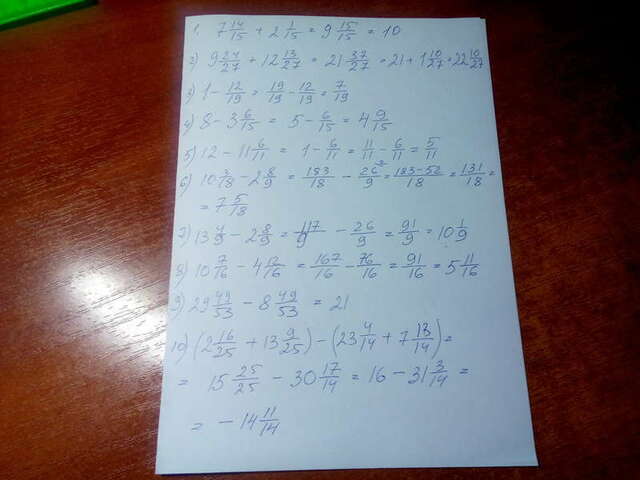 1. 7 14/15 + 2 1/15 = 9 15/15 = 10
2) 9 24/27 + 12 13/27 = 21 37/27 = 21 + 1 10/27 = 22 10/27
3) 1 - 12/19 = 19/19 - 12/19 = 7/19
4) 8 - 3 6/15 = 5 - 6/15 = 4 9/15
5) 12 - 11 6/11 = 1 - 6/11 = 11/11 - 6/11 = 5/11
6) 10 3/18 - 2 8/9 = 183/18 - 26/9 = 183-52/18 = 131/18 =
= 7 5/18
7) 13 - 2 8/9 = 117/9 - 26/9 = 91/9 = 10 1/9
8) 10 7/16 - 4 12/16 = 167/16 - 76/16 = 91/16 = 5 11/16
9) 29 49/53 - 8 49/53 = 21
10) (2 16/25 + 13 9/25) - (23 4/14 + 7 13/14) =
= 15 25/25 - 30 17/14 = 16 - 31 3/14 =
= - 14 11/14